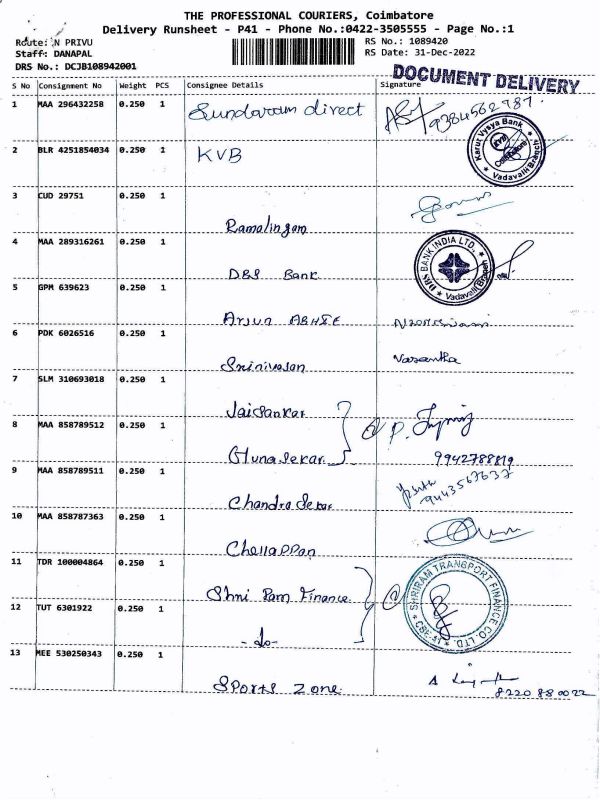 THE PROFESSIONAL COURIERS, Coimbatore
Delivery Runsheet - P41 - Phone No.:0422-3505555 - Page No.:1
Route: N PRIVU RS No.: 1089420
Staff: DANAPAL RS Date: 31-Dec-2022
DRS No.: DCJB108942001
DOCUMENT DELIVERY
S No Consignment No Weight PCS Consignee Details Signature
1 MAA 296432258 0.250 1 Sundaram direct 9384562787
Karur Vysya Bank KVB Coimbatore Vadavalli Branch
2 BLR 4251854034 0.250 1 KVB
3 CUD 29751 0.250 1
Ramalingam
4 MAA 289316261 0.250 1
DBS Bank
DBS BANK INDIA LTD., Vadavalli Branch
5 GPM 639623 0.250 1
Arjun
6 PDK 6026516 0.250 1
Srinivasan Vasantha
7 SLM 310693018 0.250 1
Jaisankar
8 MAA 858789512 0.250 1 P.
Gunasekar 9942788819
9 MAA 858789511 0.250 1
Chandrasekar 9443567637
10 MAA 858787363 0.250 1
Chellappan
11 TDR 100004864 0.250 1
Shri Ram Finance
SHRIRAM TRANSPORT FINANCE CO. LTD. CBE-41
12 TUT 6301922 0.250 1
-do-
13 MEE 530250343 0.250 1
Sports Zone A
8220880022